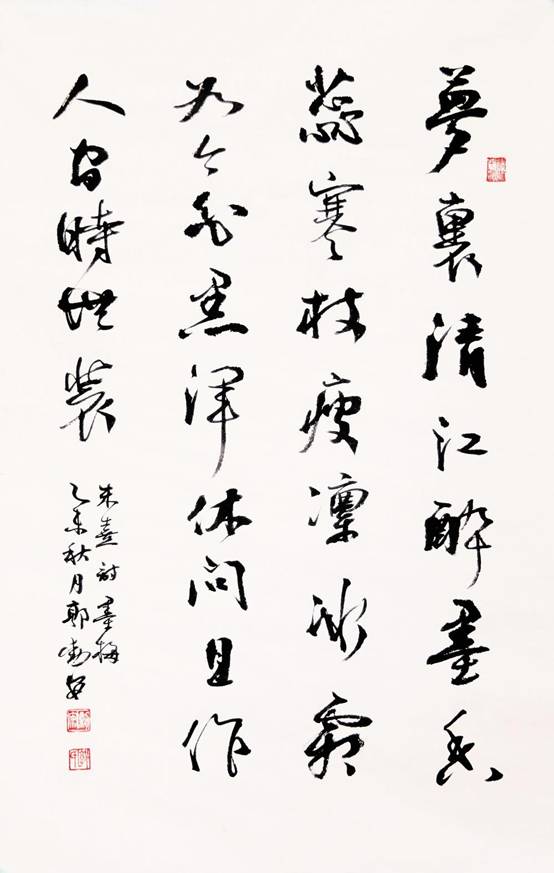 夢裏清江醉墨香
蕊寒枝瘦凛冰霜
如今白黑渾休問且作
人間時世裝
朱熹詩墨梅
乙未秋月郭